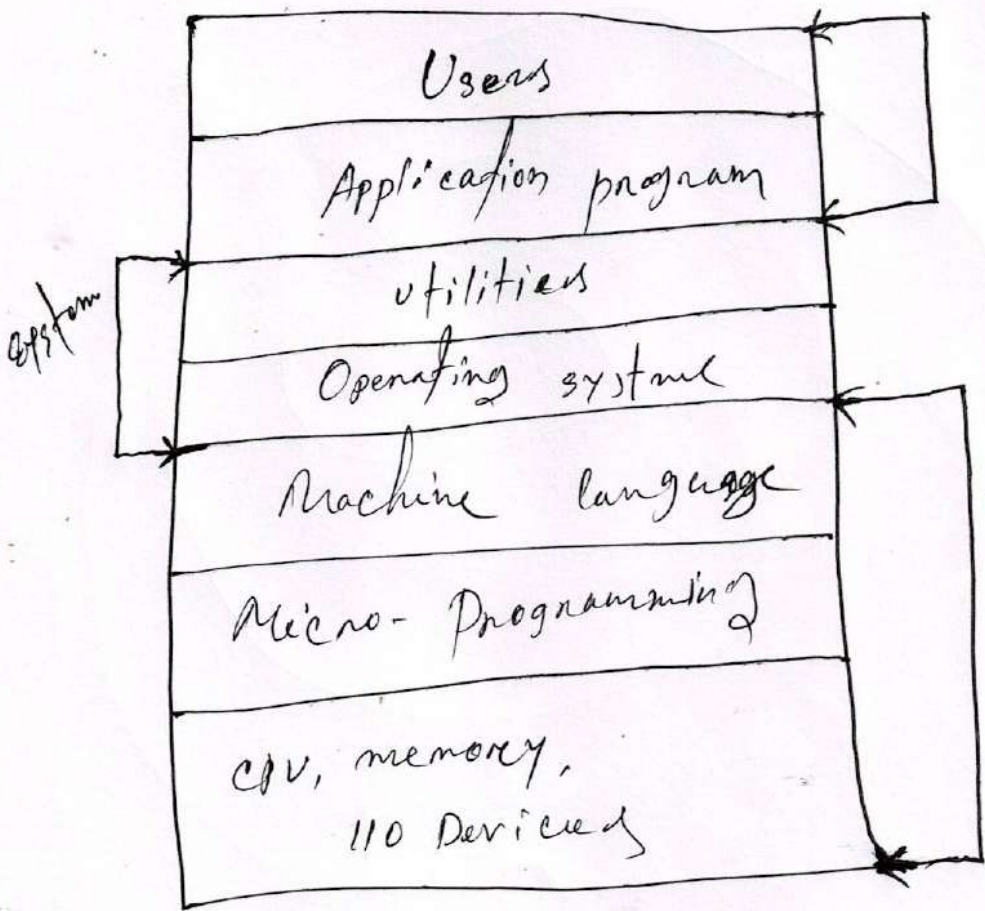 Users
Application program
utilities
system
Operating system
Machine language
Micro- Programming
CPU, memory,
I/O Devices